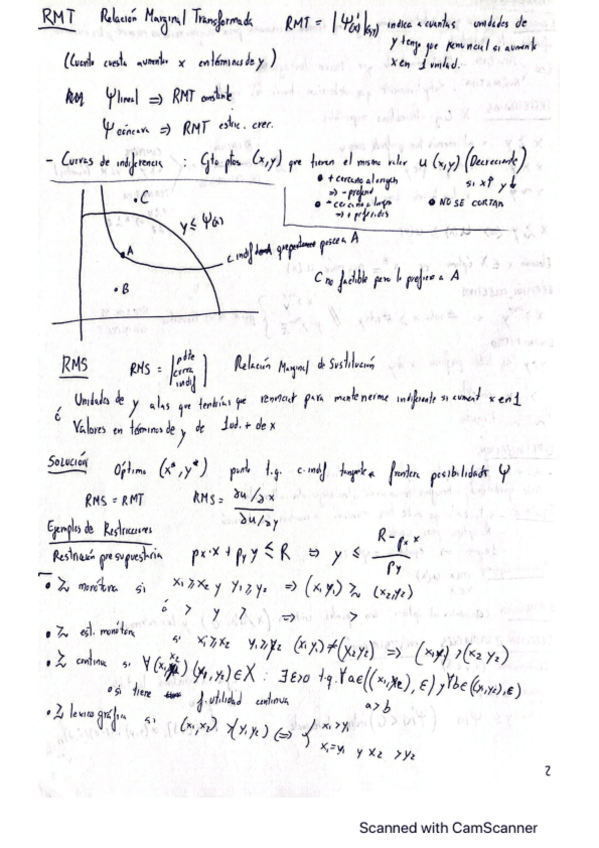 RMT Relación Marginal Transformada RMT = |Ψ'(x)|(x,y) indica a cuantas unidades de
y tengo que renunciar si aumento
x en 1 unidad.
(Cuanto cuesta aumentar x en términos de y)
Ψ lineal => RMT constante
Ψ cóncava => RMT estric. crec.
- Curvas de indiferencia : Gto ptos (x,y) que tienen el mismo valor u(x,y) (Decreciente)
si x↑ y↓
• + cercano al origen
=> - preferid
• - cercano al origen
=> + preferidos
• NO SE CORTAN
• C
y ≤ Ψ(x)
A
c. indf que posee a A
• B
C no factible pero lo prefiere a A
RMS RMS = |pdte curva indif| Relación Marginal de Sustitución
Unidades de y a las que tendrías que renunciar para mantenerme indiferente si aument x en 1
ó
Valores en términos de y de 1 ud. + de x
Solución Óptimo (x*, y*) punto t.q. c. indif tangente a frontera posibilidades Ψ
RMS = RMT RMS = ∂u/∂x / ∂u/∂y
Ejemplos de Restricciones
Restricción presupuestaria px·x + py y ≤ R => y ≤ R - px x / py
• ≿ monótona si x1 ≥ x2 y y1 ≥ y2 => (x1 y1) ≿ (x2, y2)
ó > y > => >
• ≿ est. monótona si x1 ≥ x2 y1 ≥ y2 (x1 y1) ≠ (x2 y2) => (x1 y1) > (x2 y2)
• ≿ continua si ∀(x1, x2) (y1, y2) ∈ X : ∃ε>0 t.q. ∀a∈((x1,x2), ε) y ∀b∈((y1,y2), ε)
a > b
• si tiene f. utilidad continua
• ≿ lexicográfica si (x1, x2) ≻ (y1 y2) <=> { x1 > y1
x1 = y1 y x2 > y2
2
Scanned with CamScanner